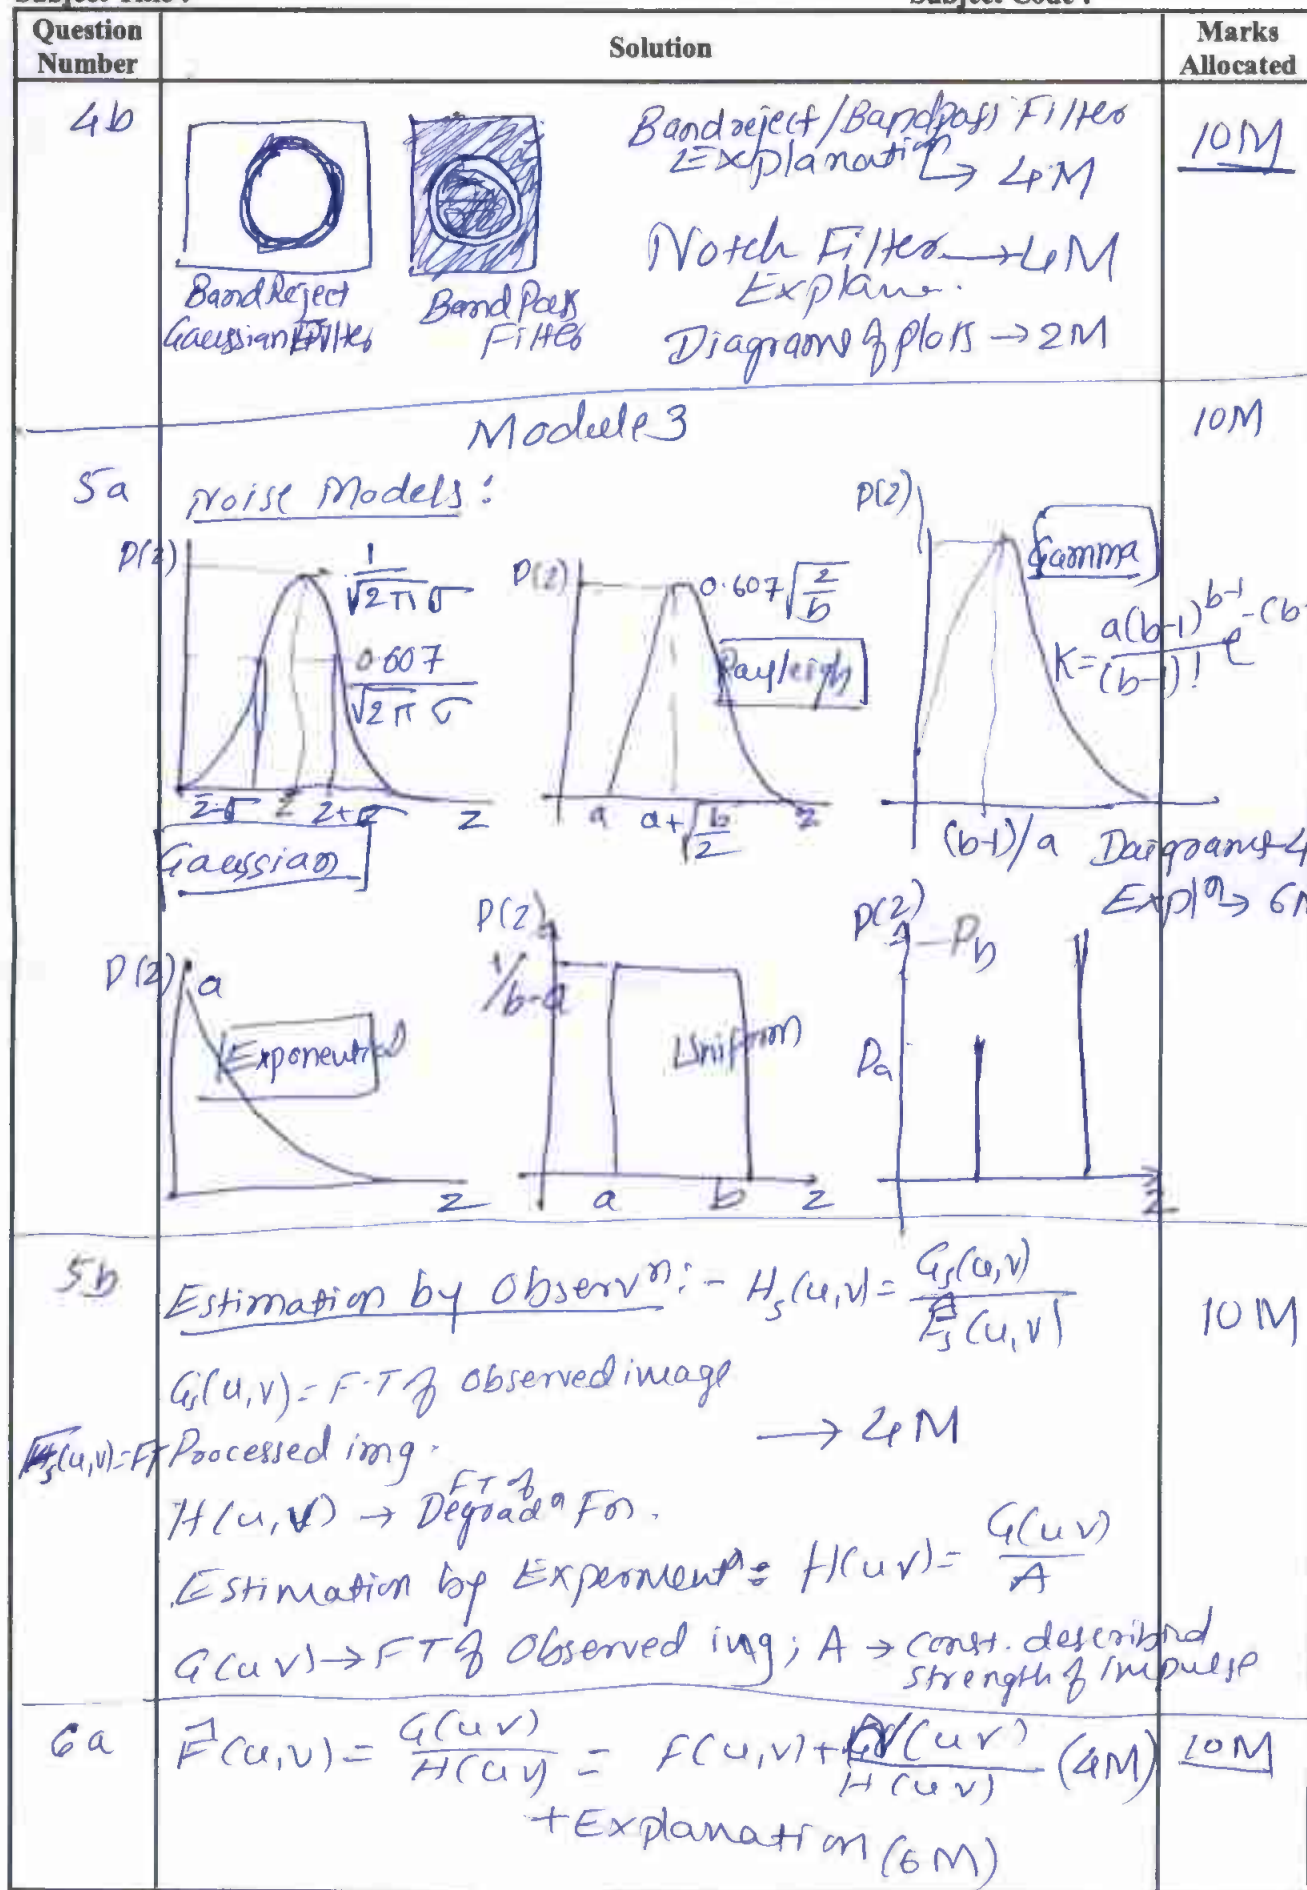 Question Number
Solution
Marks Allocated
4b
Bandreject/Bandpass Filter
Explanation → 4M
10M
Notch Filter → 4M
Explane.
Diagrams of plots → 2M
Band Reject
Gaussian Filter
Band Pass
Filter
Module 3
10M
5a
Noise Models:
P(z)
1/√2π σ
0.607/√2π σ
z-σ z z+σ z
Gaussian
P(z)
0.607√2/b
Rayleigh
a a+√b/2 z
P(z)
Gamma
K = a(b-1)^b-1/(b-1)! e^-(b-
(b-1)/a
Daigrams-4
Expl^n → 6M
P(z) a
Exponential
z
P(z)
1/b-a
Uniform
a b z
P(z)
Pb
Pa
z
5b
Estimation by Observ^n :- Hs(u,v) = Gs(u,v)/F̂s(u,v)
10M
Gs(u,v) = F.T of Observed image
→ 4M
Fs(u,v) = FT Processed img.
H(u,v) → FT of Degrad^n Fn.
Estimation by Experment^n = H(uv) = G(uv)/A
G(uv) → FT of Observed img; A → const. describind
strength of impulse
6a
F̂(u,v) = G(uv)/H(uv) = F(u,v) + N(uv)/H(uv) (4M)
10M
+ Explanation (6M)